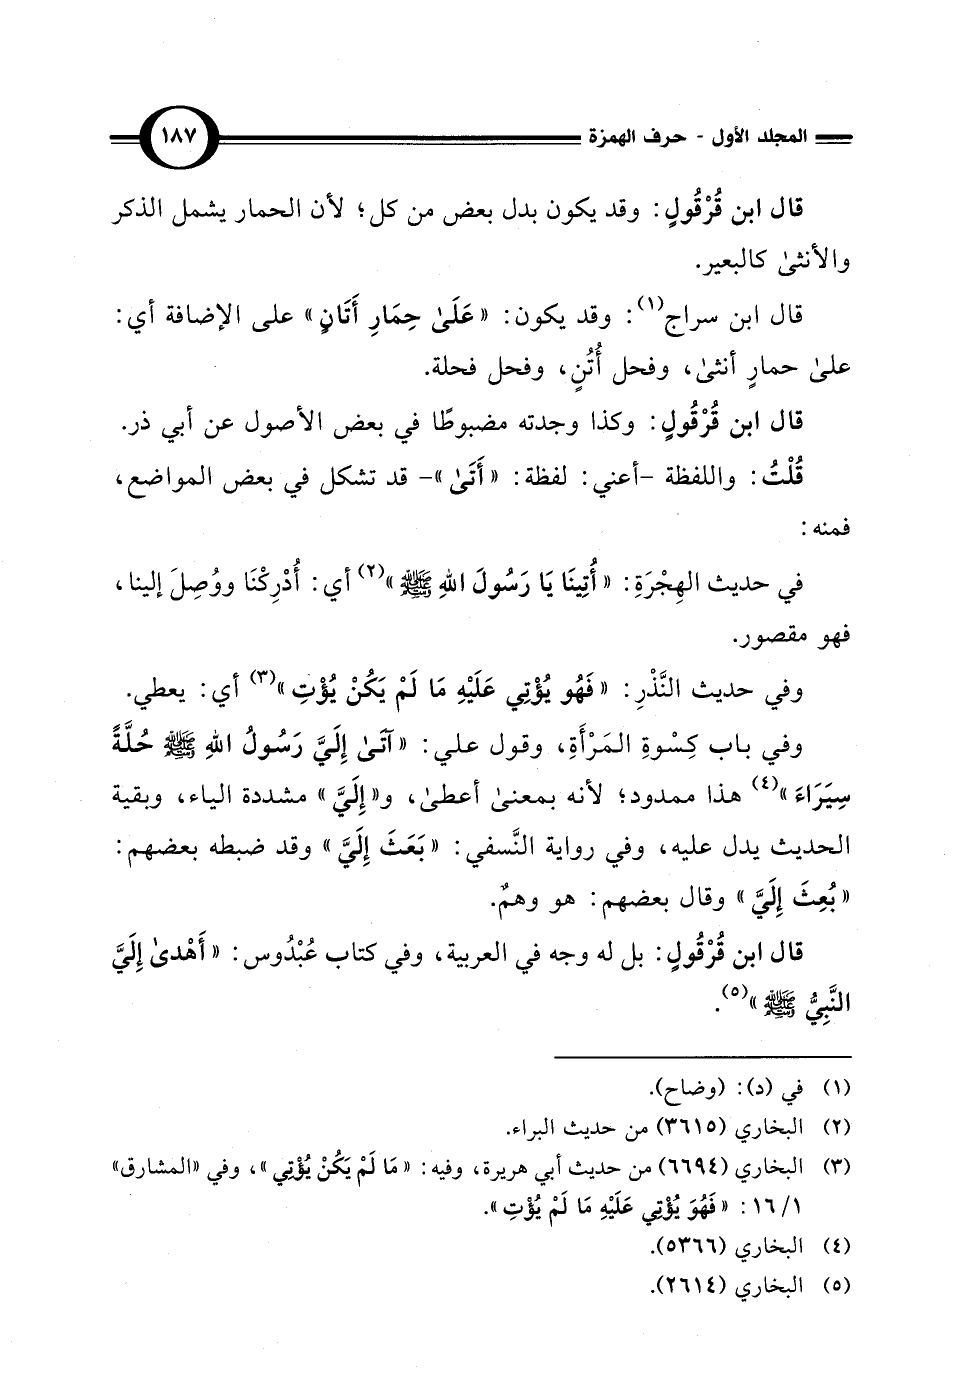 المجلد الأول - حرف الهمزة ١٨٧
قال ابن قُرْقُولٍ: وقد يكون بدل بعض من كل؛ لأن الحمار يشمل الذكر
والأنثىٰ كالبعير.
قال ابن سراج(١): وقد يكون: «عَلَىٰ حِمَارِ أَتَانٍ» على الإضافة أي:
علىٰ حمارٍ أنثىٰ، وفحل أُتُنٍ، وفحل فحلة.
قال ابن قُرْقُولٍ: وكذا وجدته مضبوطًا في بعض الأصول عن أبي ذر.
قُلْتُ: واللفظة -أعني: لفظة: «أَتَىٰ»- قد تشكل في بعض المواضع،
فمنه:
في حديث الهِجْرَةِ: «أُتِينَا يَا رَسُولَ اللهِ ﷺ»(٢) أي: أُدْرِكْنَا ووُصِلَ إلينا،
فهو مقصور.
وفي حديث النَّذْرِ: «فَهُو يُؤْتِي عَلَيْهِ مَا لَمْ يَكُنْ يُؤْتِ»(٣) أي: يعطي.
وفي باب كِسْوةِ المَرْأَةِ، وقول علي: «آتَىٰ إِلَيَّ رَسُولُ اللهِ ﷺ حُلَّةً
سِيَرَاءَ»(٤) هذا ممدود؛ لأنه بمعنىٰ أعطىٰ، و«إِلَيَّ» مشددة الياء، وبقية
الحديث يدل عليه، وفي رواية النَّسفي: «بَعَثَ إِلَيَّ» وقد ضبطه بعضهم:
«بُعِثَ إِلَيَّ» وقال بعضهم: هو وهمٌ.
قال ابن قُرْقُولٍ: بل له وجه في العربية، وفي كتاب عُبْدُوس: «أَهْدىٰ إِلَيَّ
النَّبِيُّ ﷺ»(٥).
(١) في (د): (وضاح).
(٢) البخاري (٣٦١٥) من حديث البراء.
(٣) البخاري (٦٦٩٤) من حديث أبي هريرة، وفيه: «مَا لَمْ يَكُنْ يُؤْتِي»، وفي «المشارق»
١/ ١٦: «فَهُوَ يُؤْتِي عَلَيْهِ مَا لَمْ يُؤْتِ».
(٤) البخاري (٥٣٦٦).
(٥) البخاري (٢٦١٤).